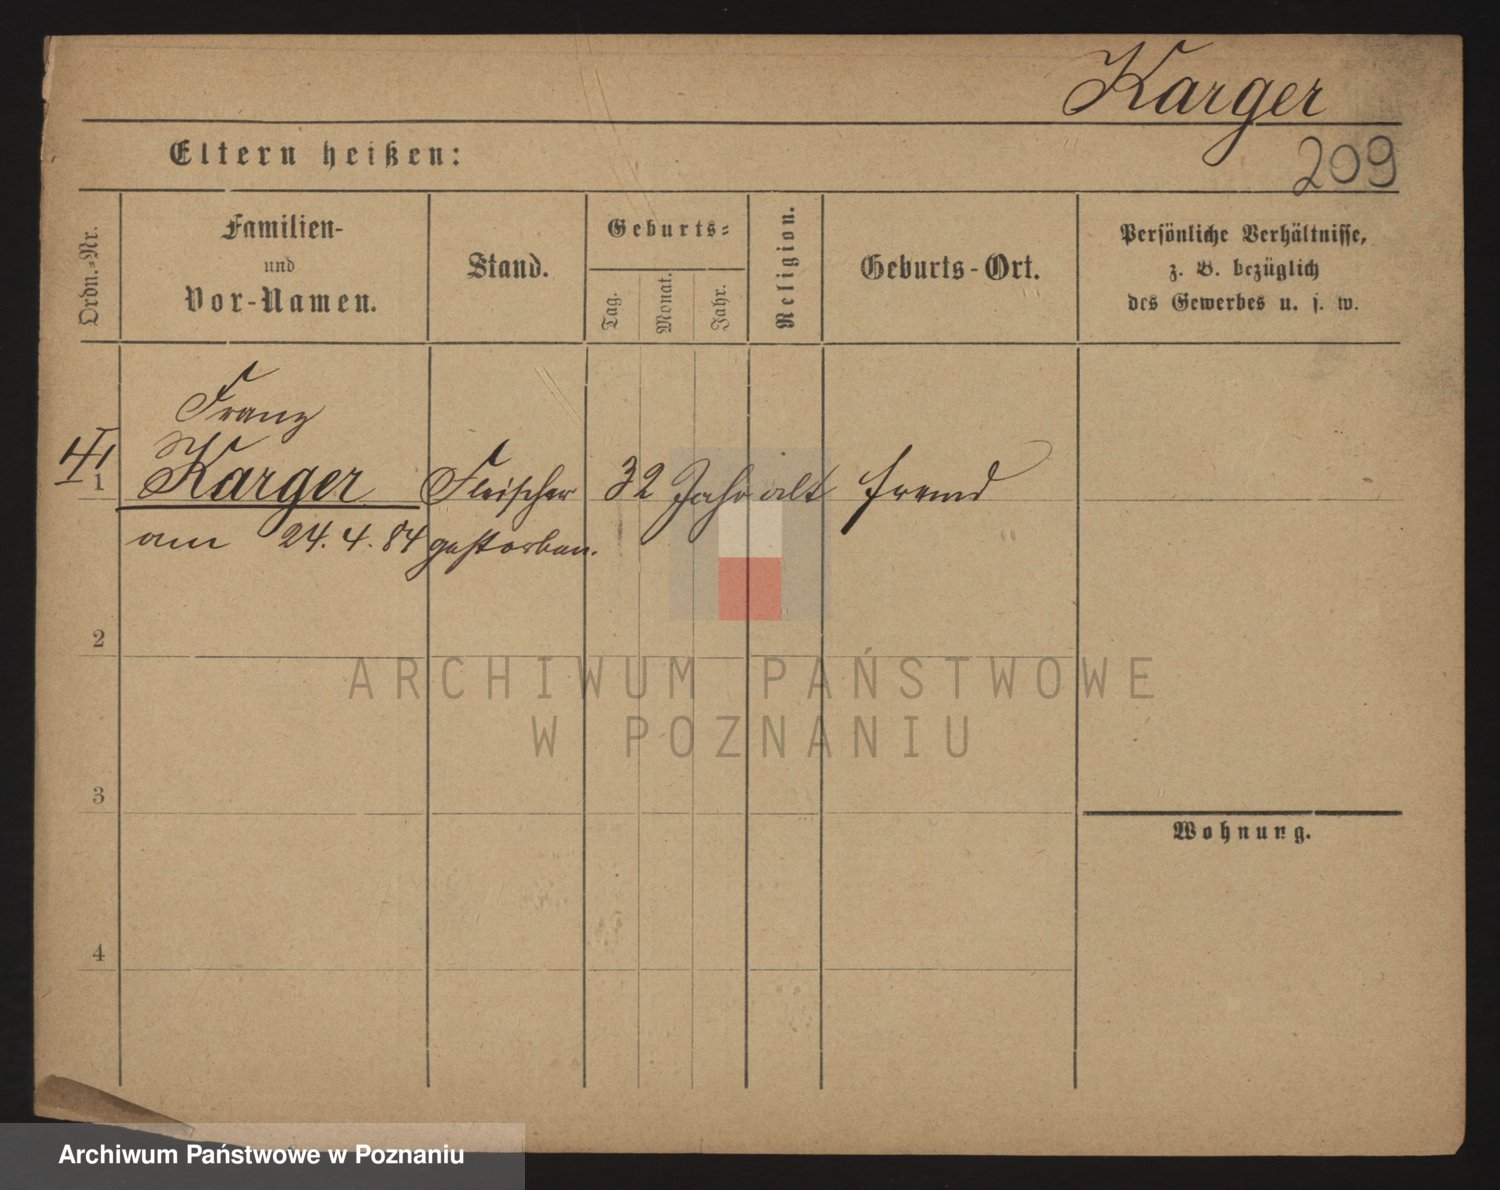 Karger
209
Eltern heißen:
Ordn.-Nr.
Familien-
und
Vor-Namen.
Stand.
Geburts-
Tag.
Monat.
Jahr.
Religion.
Geburts-Ort.
Persönliche Verhältnisse,
z. B. bezüglich
des Gewerbes u. s. w.
Franz
1 Karger Fleischer 32 Jahr alt fremd
am 24. 4. 84 gestorben.
2
3
4
Wohnung.
ARCHIWUM PAŃSTWOWE
W POZNANIU
Archiwum Państwowe w Poznaniu